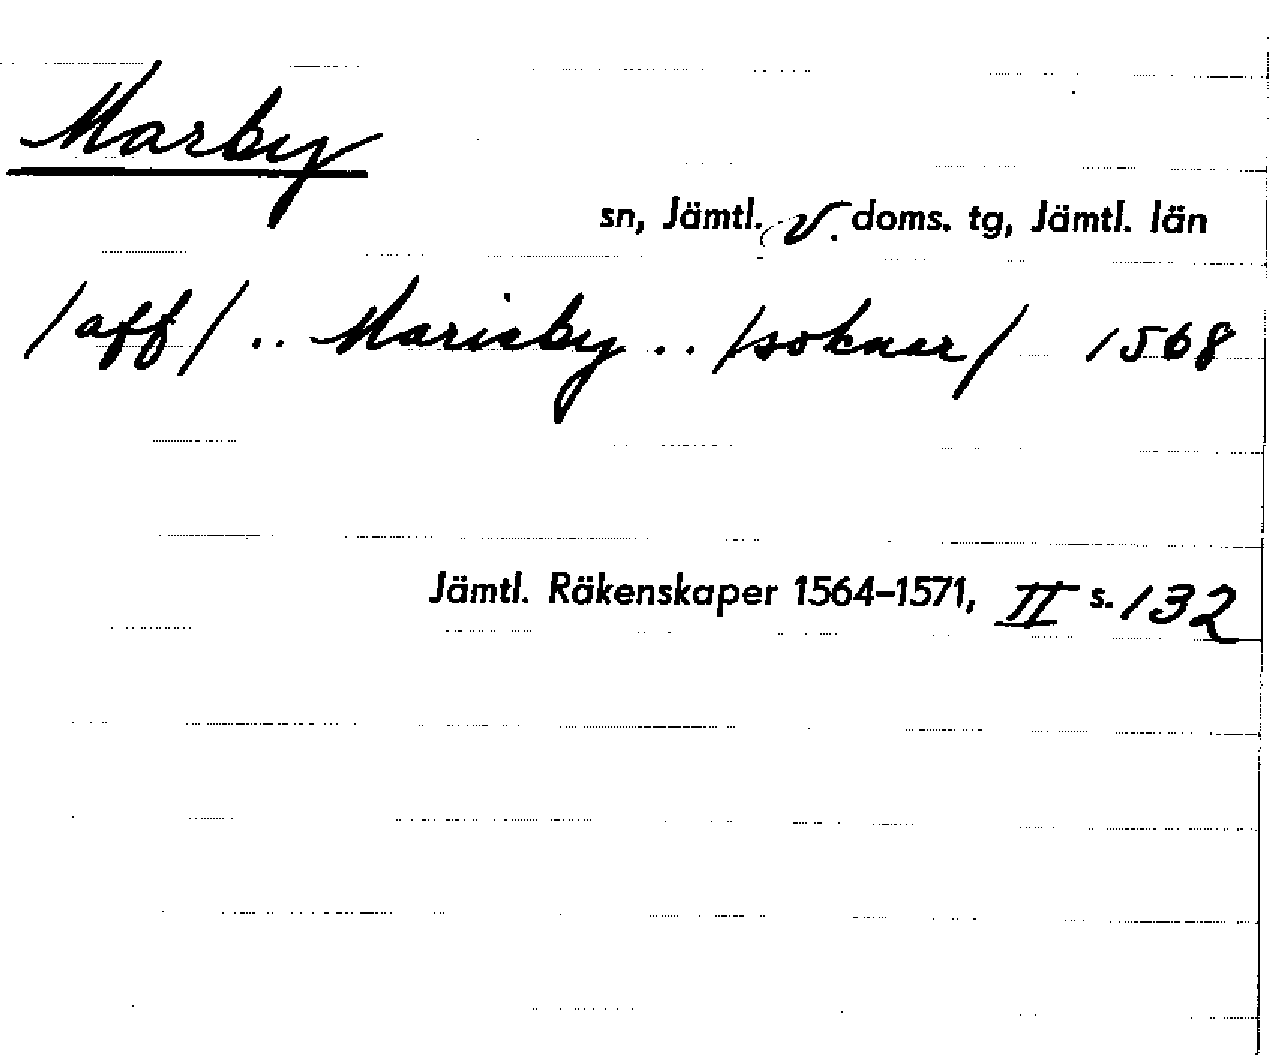 Marby
sn, Jämtl. v. doms. tg, Jämtl. län
/aff/ .. Marisby .. /soknar/ 1568
Jämtl. Räkenskaper 1564–1571, II s. 132